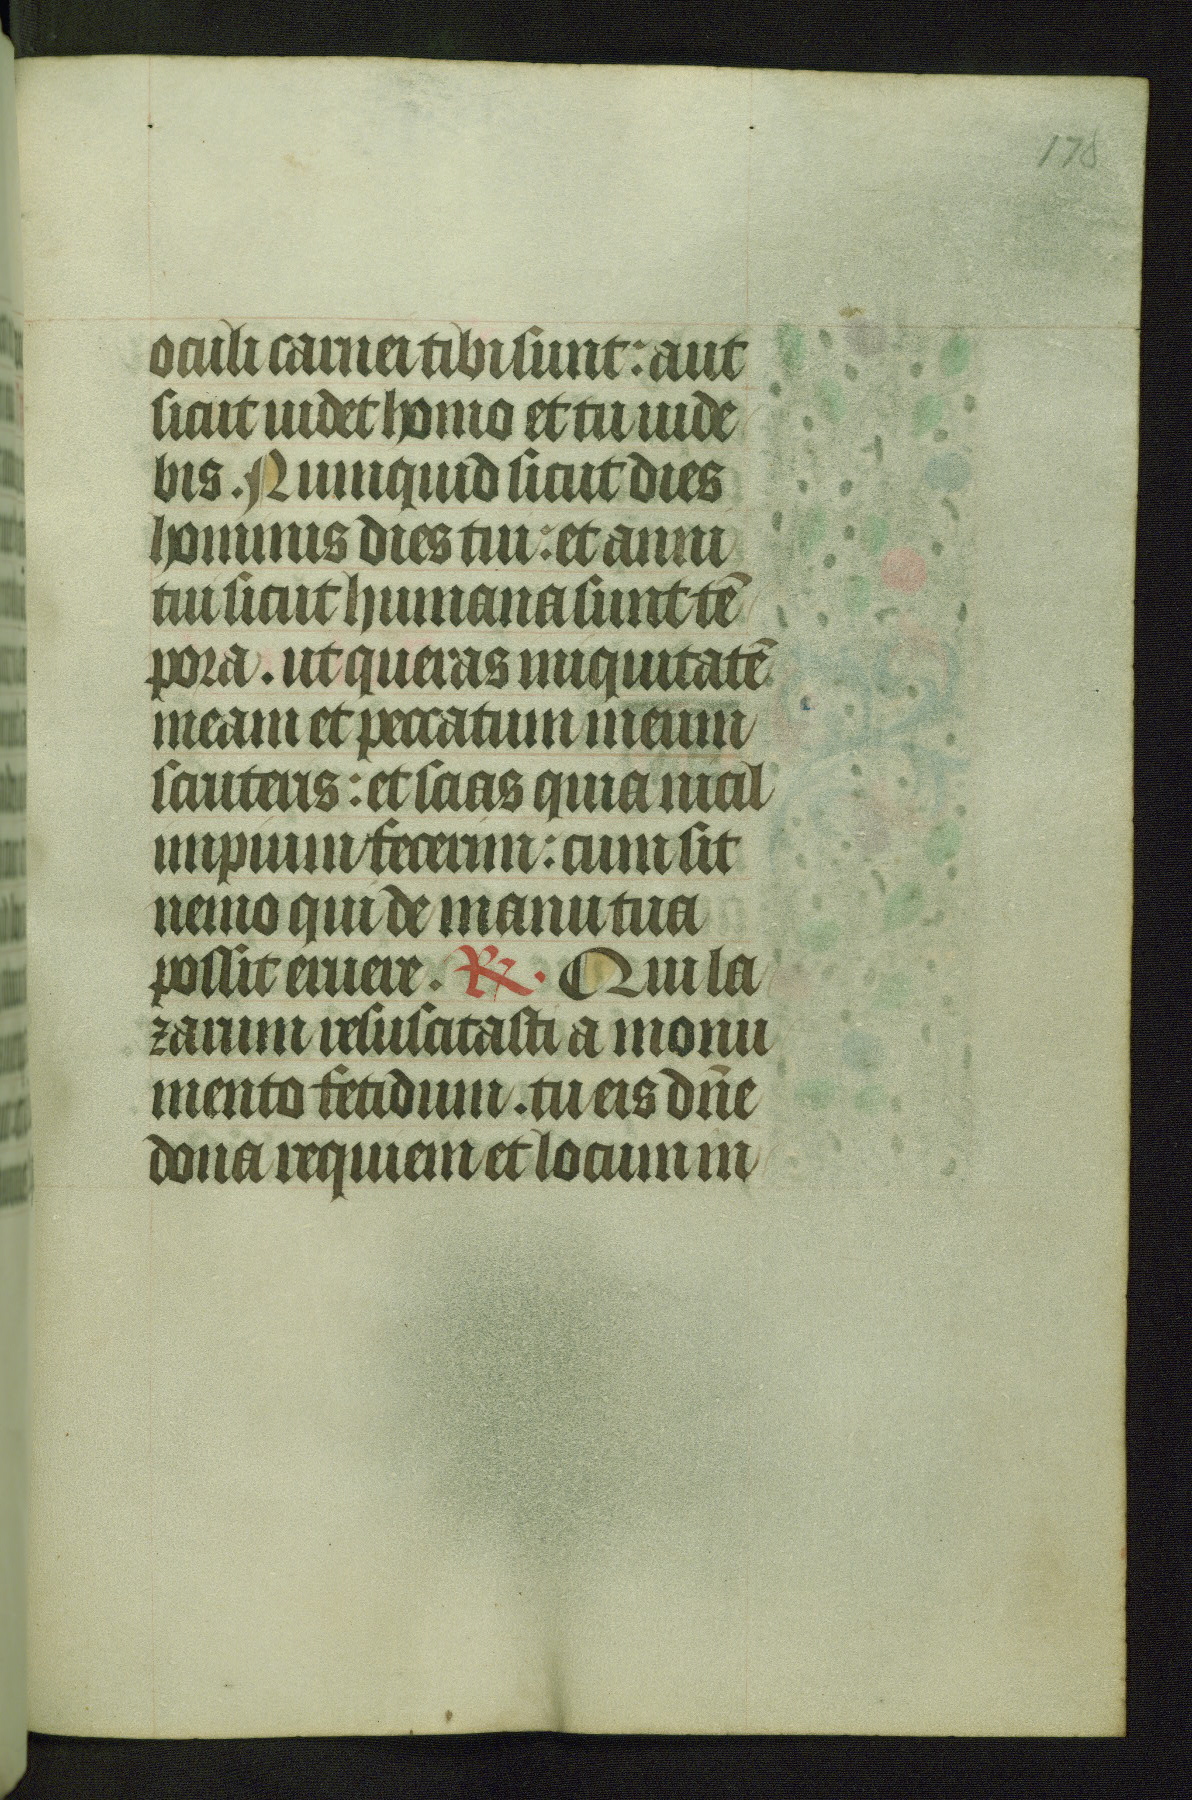 178
oculi carnei tibi sunt: aut
sicut uidet homo et tu uide
bis. Numquid sicut dies
hominis dies tui: et anni
tui sicut humana sunt tē
pora. ut queras iniquitatē
meam et peccatum meum
scruteris: et scias quia nicil
impium fecerim: cum sit
nemo qui de manu tua
possit eruere. ℟. Qui la
zarum resuscitasti a monu
mento fetidum. tu eis dn̄e
dona requiem et locum in